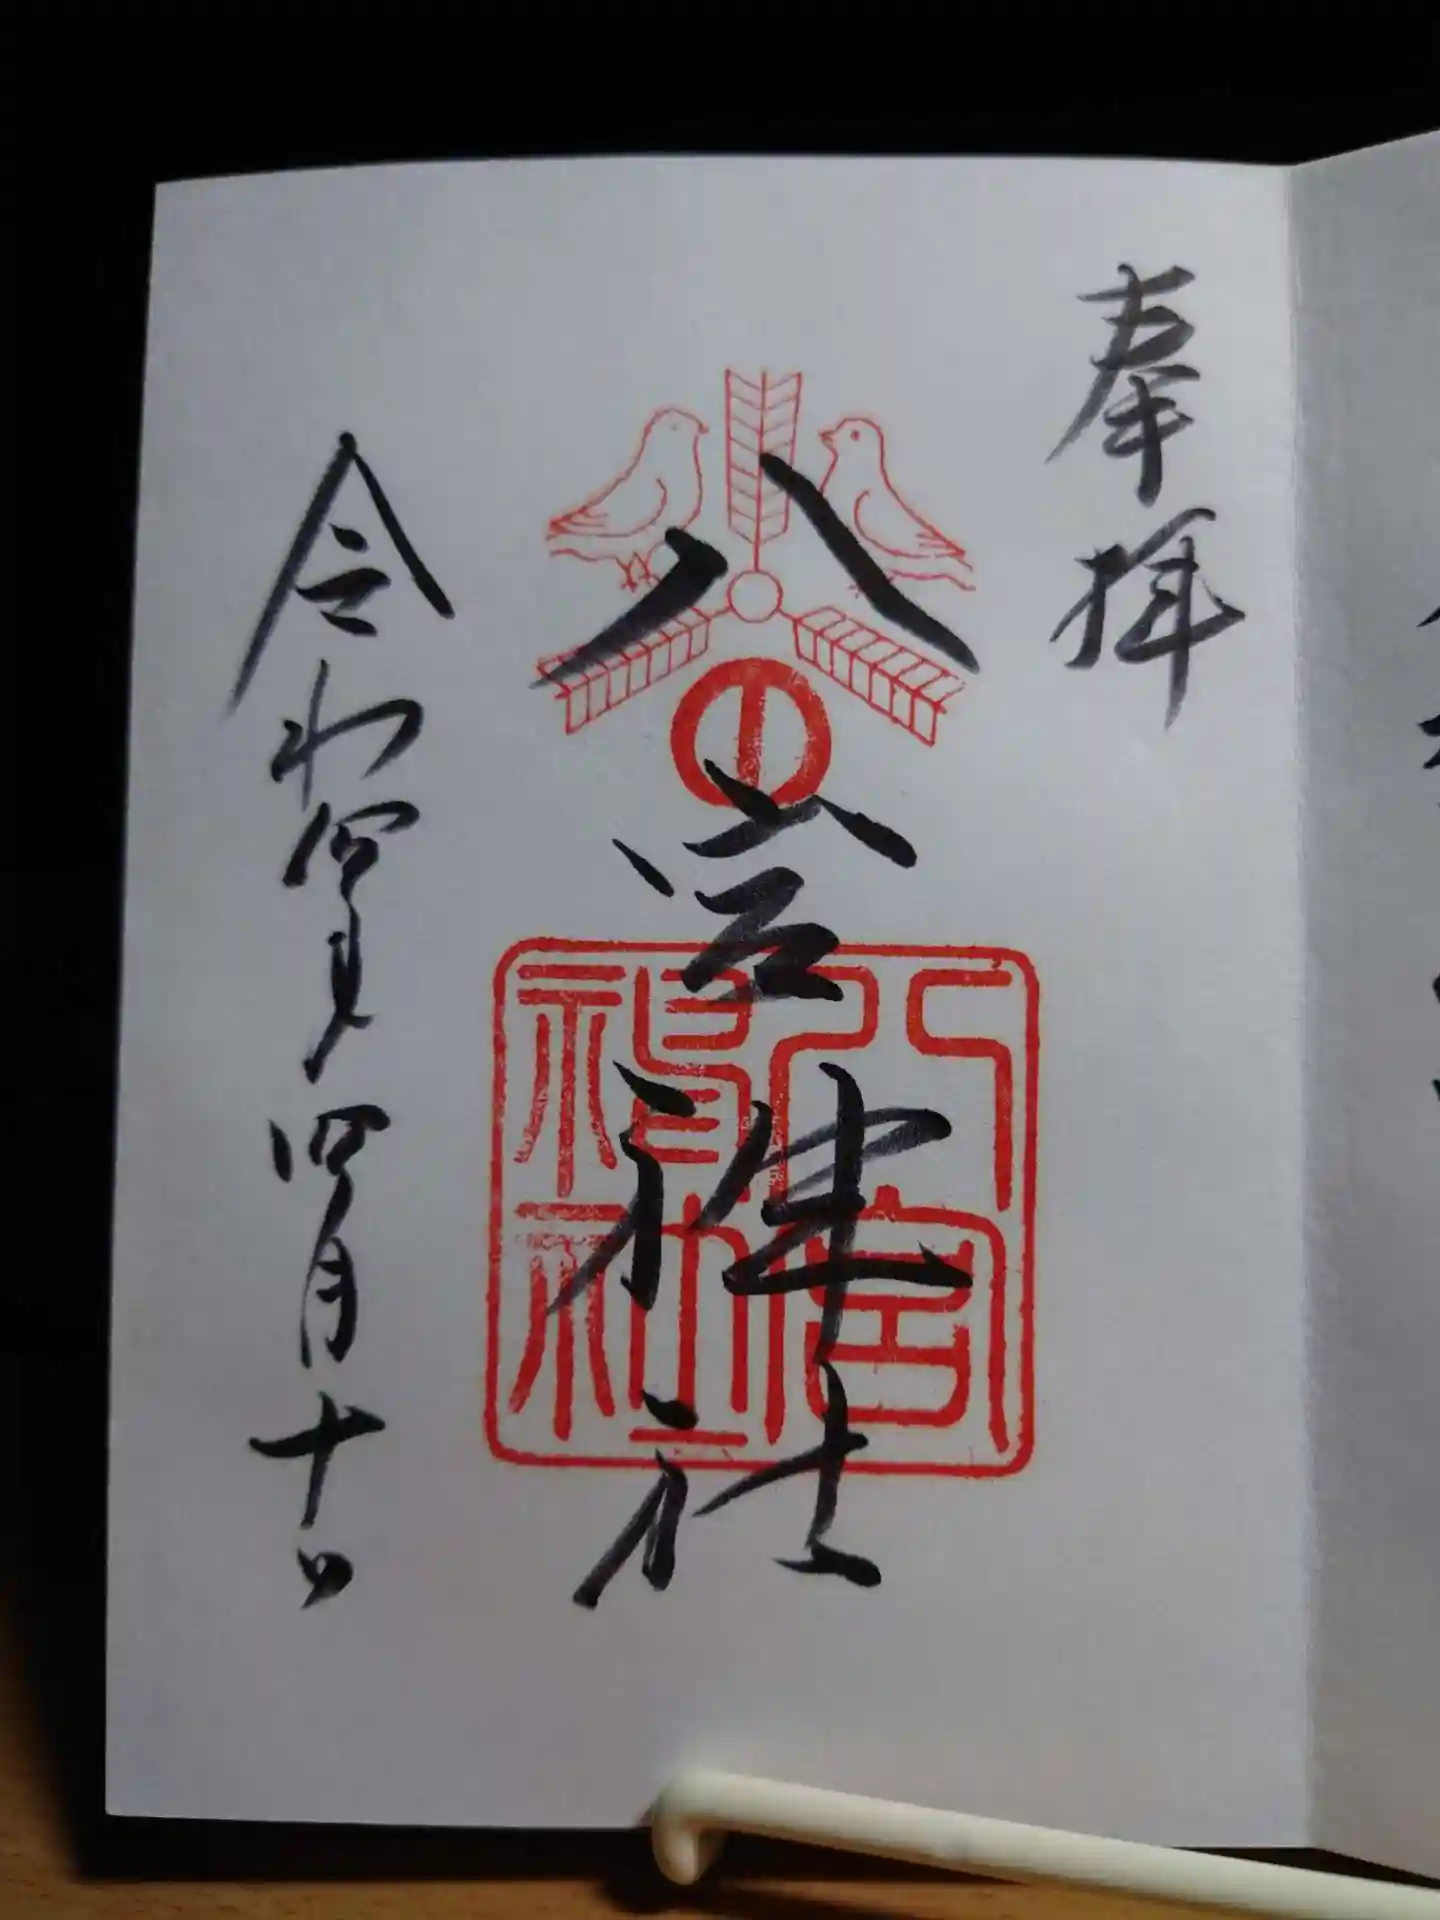 奉拝
八宮神社
八宮神社
令和四年四月十日